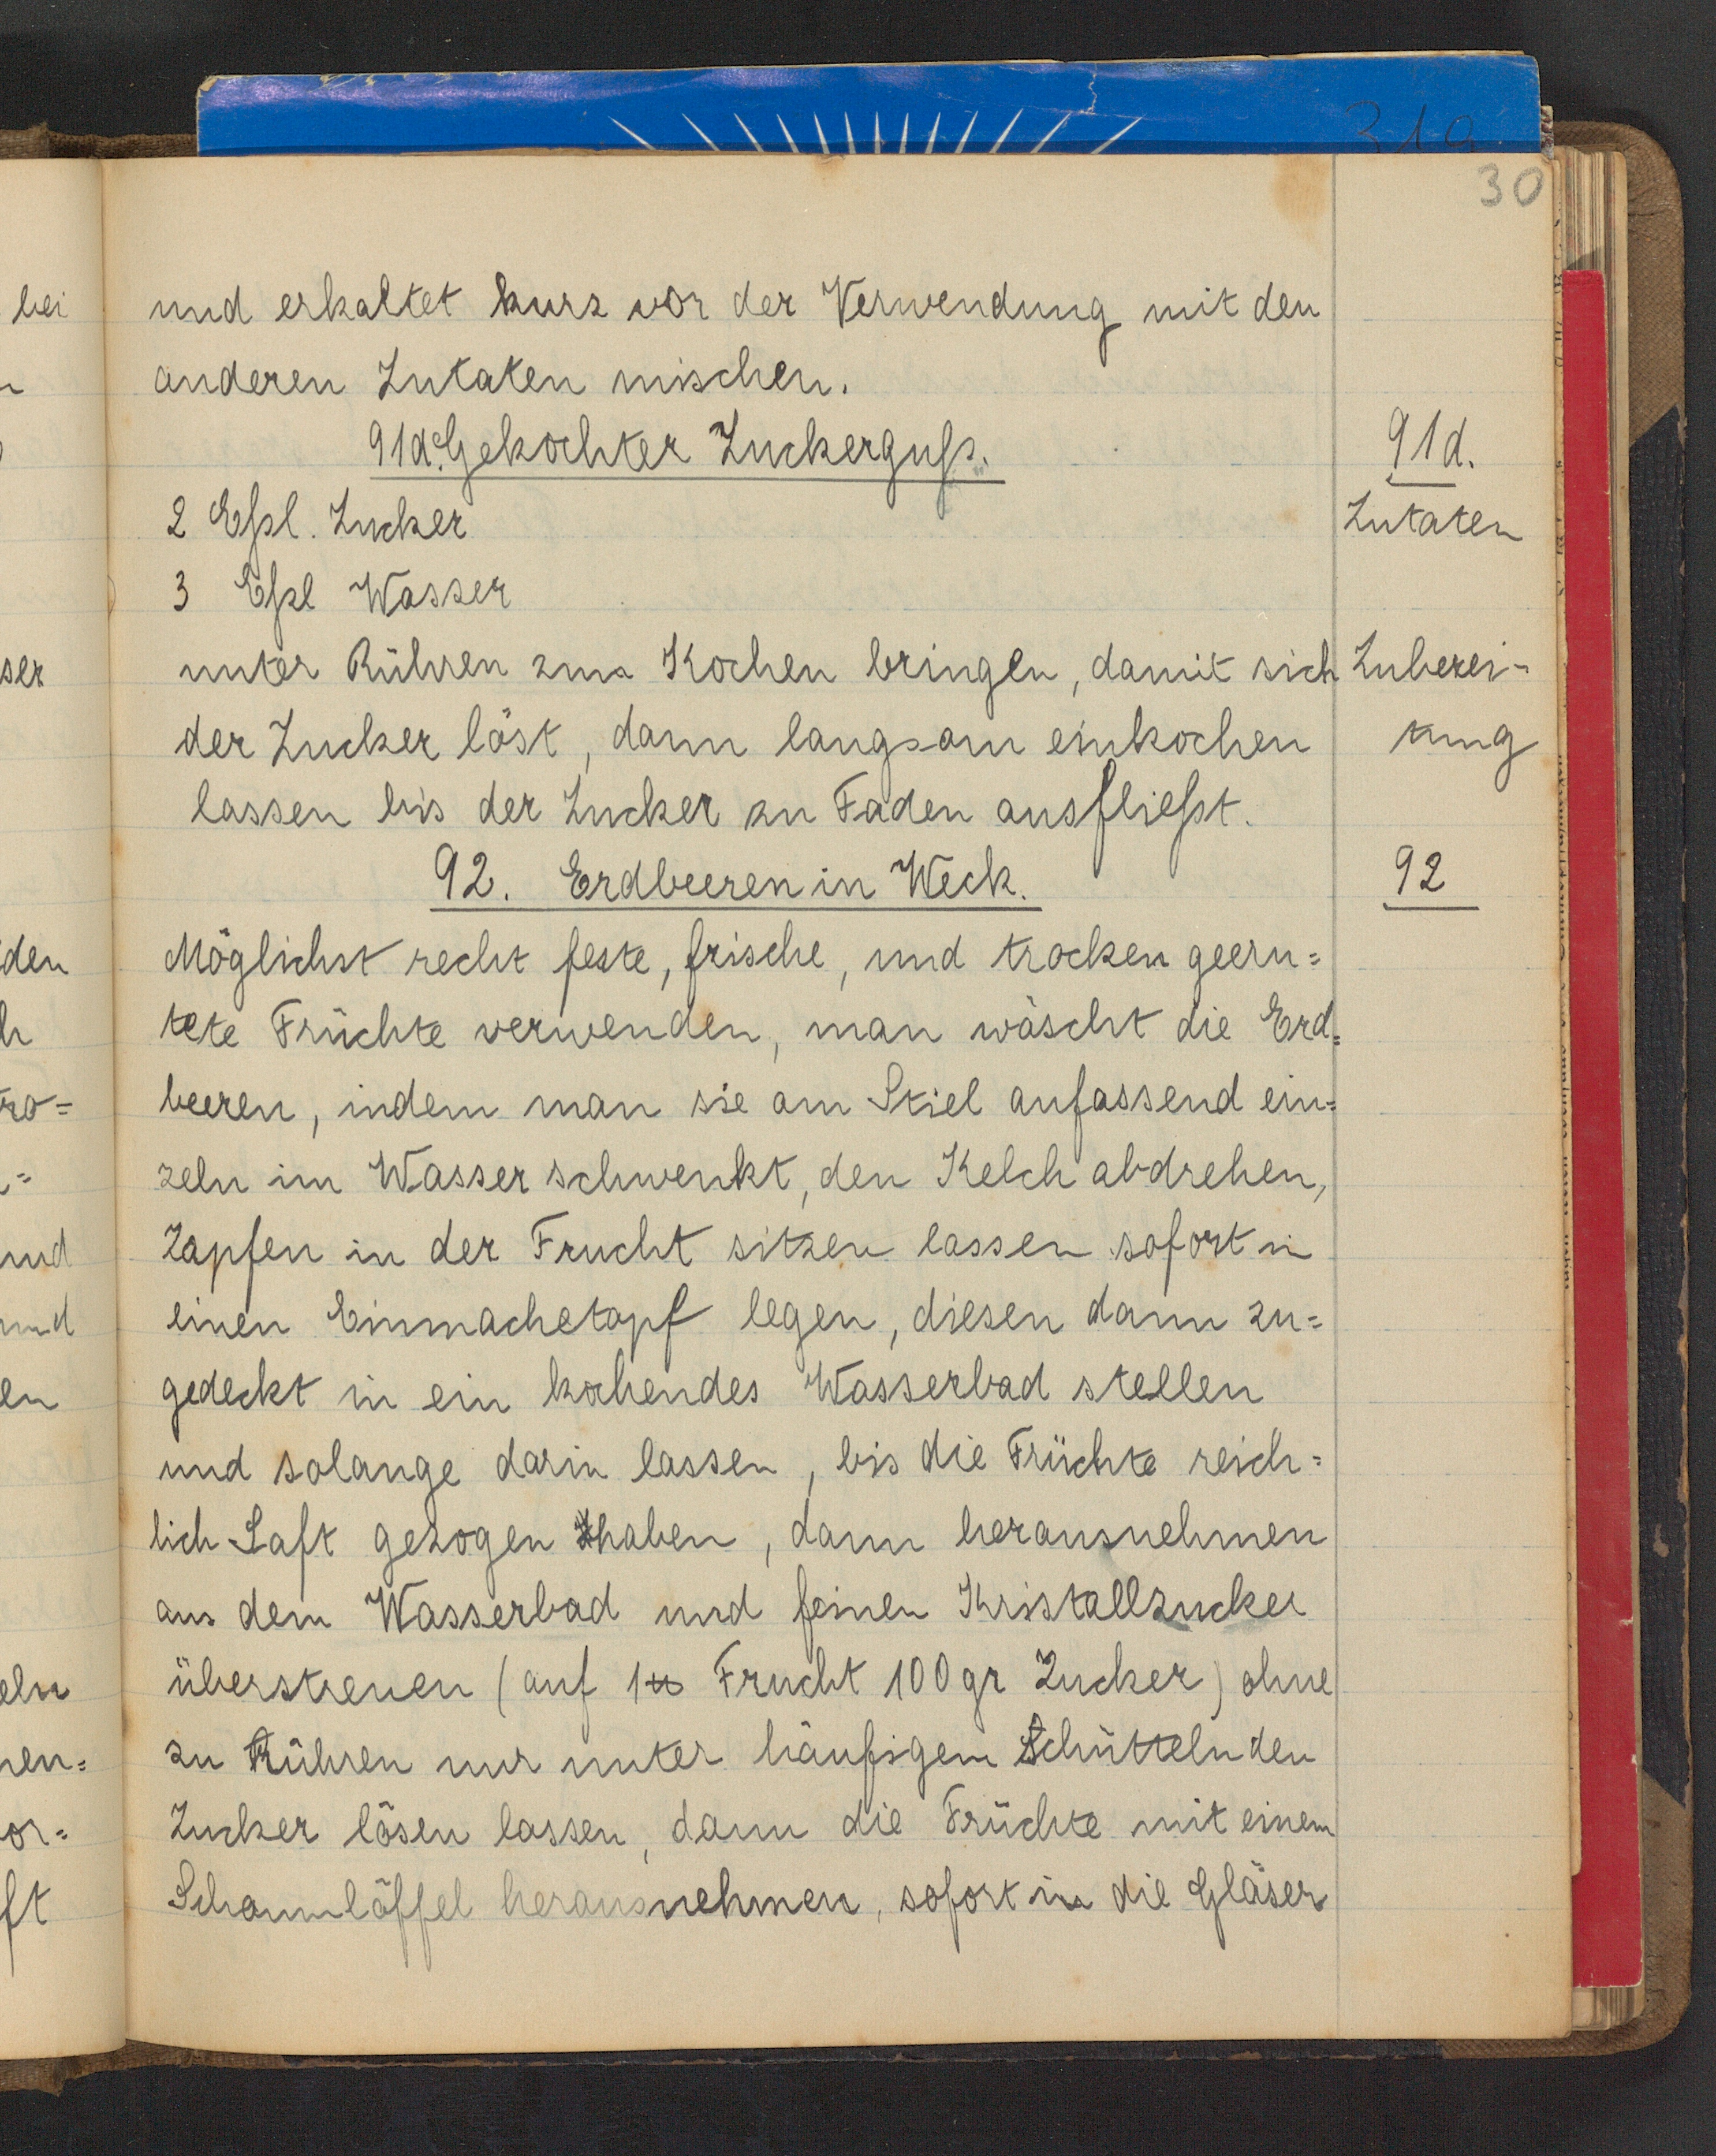 319
30
und erkaltet kurz vor der Verwendung mit den
anderen Zutaten mischen.
91d. Gekochter Zuckerguß.
91d.
2 Eßl. Zucker
Zutaten
3 Eßl Wasser
unter Rühren zum Kochen bringen, damit sich
Zuberei-
der Zucker löst, dann langsam einkochen
tung
lassen bis der Zucker zu Faden ausfließt.
92. Erdbeeren in Weck.
92
Möglichst recht feste, frische, und trocken geern=
tete Früchte verwenden, man wäscht die Erd=
beeren, indem man sie am Stiel anfassend ein=
zeln im Wasser schwenkt, den Kelch abdrehen,
Zapfen in der Frucht sitzen lassen sofort in
einen Einmachetopf legen, diesen dann zu=
gedeckt in ein kochendes Wasserbad stellen
und solange darin lassen, bis die Früchte reich=
lich Saft gezogen haben, dann herausnehmen
aus dem Wasserbad und feinen Kristallzucker
überstreuen (auf 1 ℔ Frucht 100 gr Zucker) ohne
zu Rühren nur unter häufigem Schütteln den
Zucker lösen lassen, dann die Früchte mit einem
Schaumlöffel herausnehmen, sofort in die Gläser
bei
ser
den
h
tro=
und
und
en
eln
nen=
or=
ft